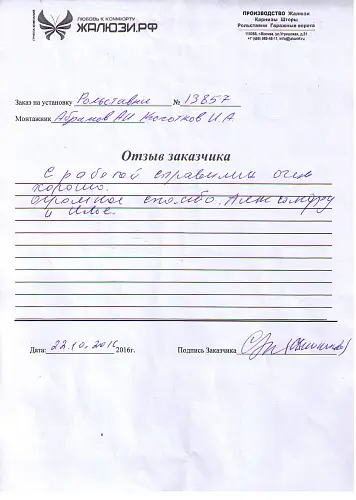 ЛЮБОВЬ К КОМФОРТУ
ЖАЛЮЗИ.РФ
ПРОИЗВОДСТВО Жалюзи
Карнизы Шторы
Рольставни Гаражные ворота
Заказ на установку Рольставни № 13857
Монтажник Абрамов АИ Кокотков И.А
Отзыв заказчика
С работой справились очень
хорошо.
огромное спасибо. Александру
и Илье.
Дата: 22.10.2016 2016г. Подпись Заказчика